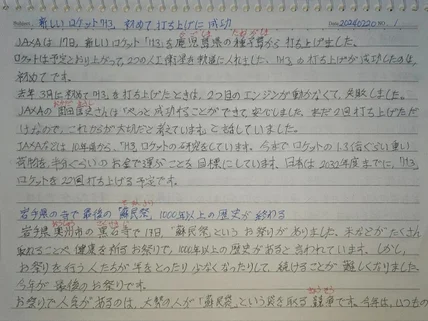 新しいロケット「H3」初めて打ち上げに成功
Date 20240220 NO. 1
JAXAは17日、新しいロケット「H3」を鹿児島県の種子島から打ち上げました。
ロケットは予定どおり上がって、2つの人工衛星を軌道に入れました。「H3」の打ち上げが成功したのは、
初めてです。
去年3月に初めて「H3」を打ち上げたときは、2つ目のエンジンが動かなくて、失敗しました。
JAXAの岡田さんは「やっと成功することができて、安心しました。まだ2回打ち上げただ
けなので、これからが大切だと考えています」と話していました。
JAXAなどは10年前から、「H3」ロケットの研究をしています。今までロケットの1.3倍ぐらい重い
荷物を半分ぐらいのお金で運ぶことを目標にしています。日本は2032年度までに、「H3」
ロケットを22回打ち上げる予定です。
岩手県の寺で最後の「蘇民祭」1000年以上の歴史が終わる
岩手県奥州市の黒石寺で17日、「蘇民祭」というお祭りがありました。米などがたくさん
取れることや健康を祈るお祭りで、1000年以上の歴史があると言われています。しかし、
お祭りを行う人たちが年をとったり少なくなったりして、続けることが難しくなりました。
今年が最後のお祭りです。
お祭りで人気があるのは、大勢の人が「蘇民袋」という袋を取る競争です。今年は、いつもの